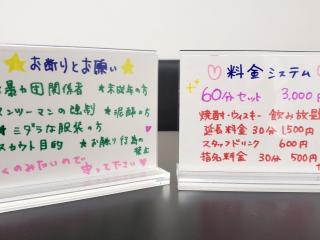 お断りとお願い
暴力団関係者 ★未成年の方
マンツーマンの強制 ★泥酔の方
★ミダラな服装の方
スカウト目的 ★お触り行為の禁止
守ってたさい♥
料金システム
60分セット 3,000円
焼酎・ウィスキー 飲み放題
延長料金 30分 1,500円
スタッフドリンク 600円
指名料金 30分 500円